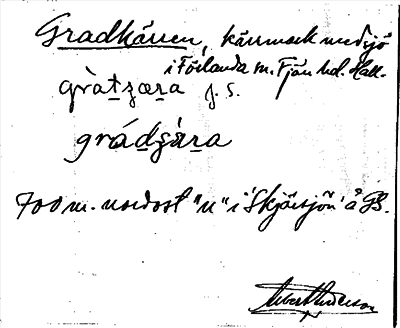 Gradkärren, kärrmark med sjö
i Förlanda sn. Fjäre hd. Hall.
gràtzæra J. S.
grádzǽra
700 m. nordost "n" i 'Skjärsjön' å GS.